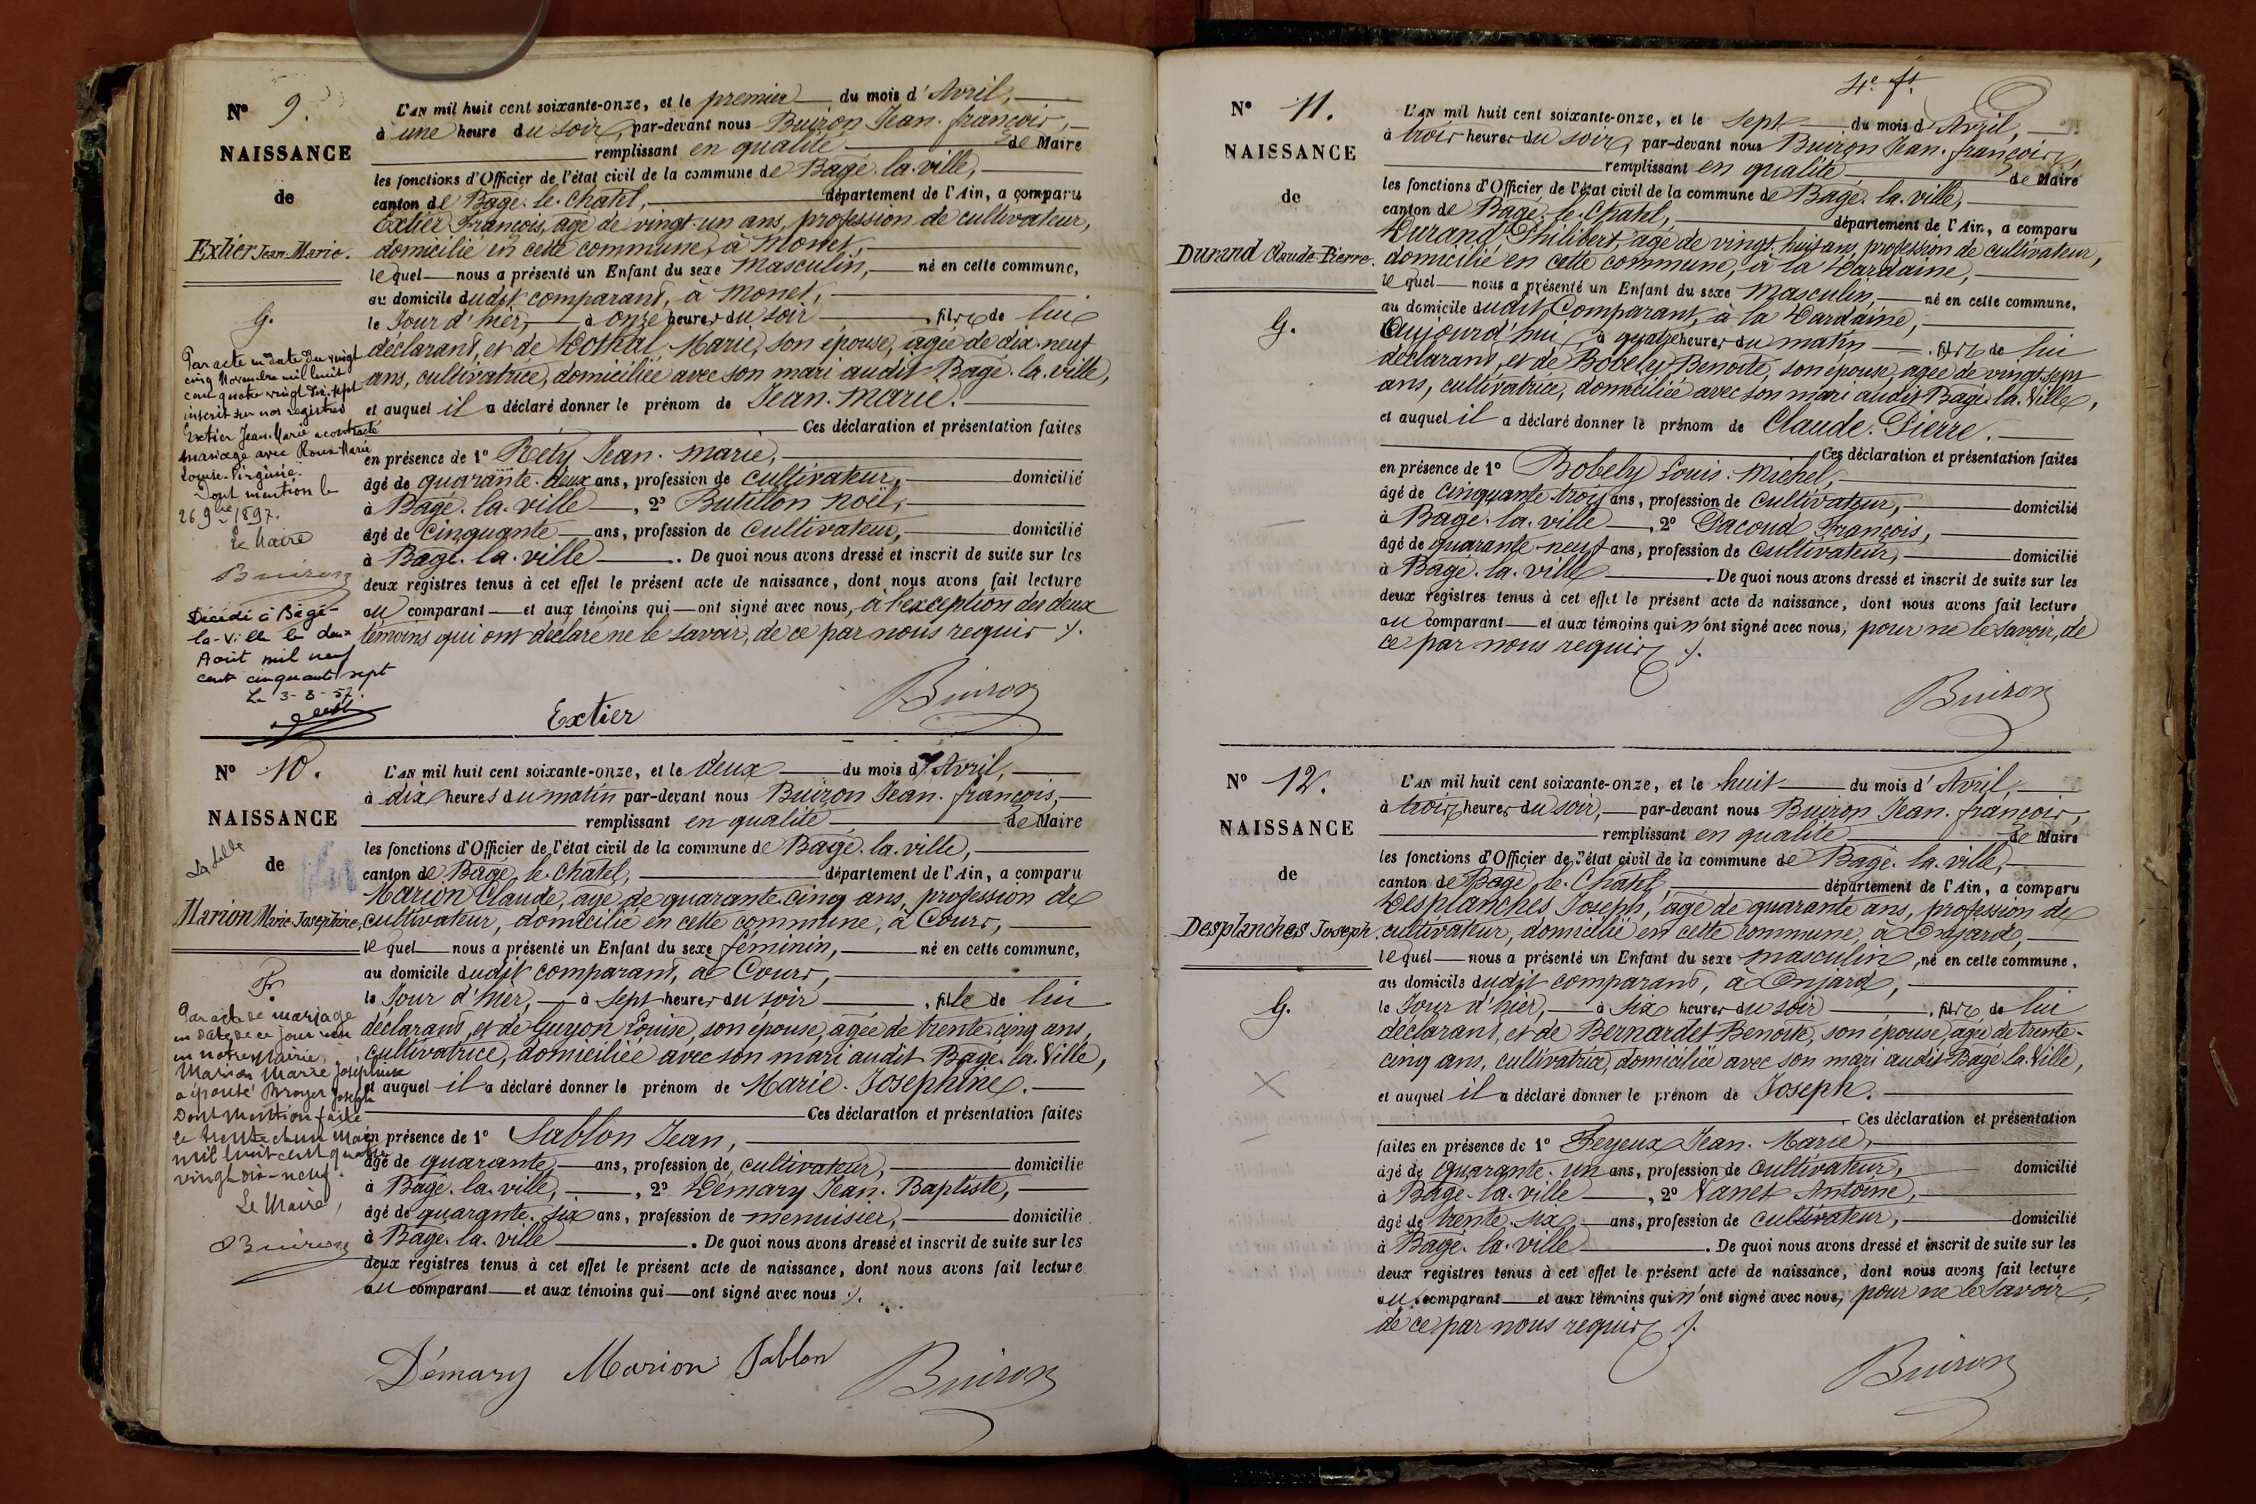 N° 9.
NAISSANCE
de
Extier Jean-Marie.
G.
Par acte en date du vingt
cinq Novembre mil huit
cent quatre vingt dix-sept
inscrit sur nos registres
Extier Jean-Marie a contracté
mariage avec Roux Marie
Louise-Virginie.
Dont mention le
26 9bre 1897.
Le Maire
Buiron
Décédé à Bâgé-
la-Ville le deux
Août mil neuf
cent cinquante sept
Le 3-8-57.
L'AN mil huit cent soixante-onze, et le premier du mois d'Avril,
à une heure du soir, par-devant nous Buiron Jean-françois,
remplissant en qualité de Maire
les fonctions d'Officier de l'état civil de la commune de Bâgé-la-ville,
canton de Bâgé-le-Chatel, département de l'Ain, a comparu
Extier François, âgé de vingt-un ans, profession de cultivateur,
domicilié en cette commune, à Monet,
lequel nous a présenté un Enfant du sexe masculin, né en cette commune,
au domicile dudit comparant, à Monet,
le Jour d'hier, à onze heures du soir, fils de lui
déclarant, et de Dothal Marie, son épouse, âgée de dix-neuf
ans, cultivatrice, domiciliée avec son mari audit Bâgé-la-ville,
et auquel il a déclaré donner le prénom de Jean-Marie.
Ces déclaration et présentation faites
en présence de 1° Réty Jean-marie,
âgé de quarante-deux ans, profession de cultivateur, domicilié
à Bâgé-la-ville, 2° Butillon Noël,
âgé de cinquante ans, profession de cultivateur, domicilié
à Bâgé-la-ville. De quoi nous avons dressé et inscrit de suite sur les
deux registres tenus à cet effet le présent acte de naissance, dont nous avons fait lecture
au comparant et aux témoins qui ont signé avec nous, à l'exception des deux
témoins qui ont déclaré ne le savoir, de ce par nous requis ./.
Extier Buiron
N° 10.
NAISSANCE
de
Marion Marie-Josephine.
Fr.
Par acte de mariage
en date de ce jour reçu
en notre Mairie,
Marion Marie Josephine
a épousé Broyer Joseph
Dont mention faite
le trente et un mai
mil huit cent quatre
vingt dix-neuf.
Le Maire,
Buiron
L'AN mil huit cent soixante-onze, et le deux du mois d'Avril,
à dix heures du matin par-devant nous Buiron Jean-françois,
remplissant en qualité de Maire
les fonctions d'Officier de l'état civil de la commune de Bâgé-la-ville,
canton de Bâgé-le-Chatel, département de l'Ain, a comparu
Marion Claude, âgé de quarante-cinq ans, profession de
cultivateur, domicilié en cette commune, à Cours,
lequel nous a présenté un Enfant du sexe féminin, né en cette commune,
au domicile dudit comparant, à Cours,
le Jour d'hier, à sept heures du soir, fille de lui
déclarant, et de Guyon Louise, son épouse, âgée de trente-cinq ans,
cultivatrice, domiciliée avec son mari audit Bâgé-la-Ville,
et auquel il a déclaré donner le prénom de Marie-Josephine.
Ces déclaration et présentation faites
en présence de 1° Sablon Jean,
âgé de quarante ans, profession de cultivateur, domicilié
à Bâgé-la-ville, 2° Démary Jean-Baptiste,
âgé de quarante-six ans, profession de menuisier, domicilié
à Bâgé-la-ville. De quoi nous avons dressé et inscrit de suite sur les
deux registres tenus à cet effet le présent acte de naissance, dont nous avons fait lecture
au comparant et aux témoins qui ont signé avec nous ./.
Démary Marion Sablon Buiron
4e ft.
N° 11.
NAISSANCE
de
Durand Claude-Pierre.
G.
L'AN mil huit cent soixante-onze, et le sept du mois d'Avril,
à trois heures du soir, par-devant nous Buiron Jean-françois,
remplissant en qualité de Maire
les fonctions d'Officier de l'état civil de la commune de Bâgé-la-ville,
canton de Bâgé-le-Chatel, département de l'Ain, a comparu
Durand Philibert, âgé de vingt-huit ans, profession de cultivateur,
domicilié en cette commune, à la Dardaine,
lequel nous a présenté un Enfant du sexe masculin, né en cette commune,
au domicile dudit Comparant, à la Dardaine,
Aujourd'hui, à quatre heures du matin, fils de lui
déclarant, et de Bobely Benoite, son épouse, âgée de vingt-sept
ans, cultivatrice, domiciliée avec son mari audit Bâgé-la-Ville,
et auquel il a déclaré donner le prénom de Claude-Pierre.
Ces déclaration et présentation faites
en présence de 1° Bobely Louis-Michel,
âgé de cinquante-trois ans, profession de cultivateur, domicilié
à Bâgé-la-ville, 2° Pacoud François,
âgé de quarante-neuf ans, profession de cultivateur, domicilié
à Bâgé-la-ville. De quoi nous avons dressé et inscrit de suite sur les
deux registres tenus à cet effet le présent acte de naissance, dont nous avons fait lecture
au comparant et aux témoins qui n'ont signé avec nous, pour ne le savoir, de
ce par nous requis ./.
Buiron
N° 12.
NAISSANCE
de
Desplanches Joseph.
G.
L'AN mil huit cent soixante-onze, et le huit du mois d'Avril,
à trois heures du soir, par-devant nous Buiron Jean-françois,
remplissant en qualité de Maire
les fonctions d'Officier de l'état civil de la commune de Bâgé-la-ville,
canton de Bâgé-le-Chatel, département de l'Ain, a comparu
Desplanches Joseph, âgé de quarante ans, profession de
cultivateur, domicilié en cette commune, à Onjard,
lequel nous a présenté un Enfant du sexe masculin, né en cette commune,
au domicile dudit comparant, à Onjard,
le Jour d'hier, à six heures du soir, fils de lui
déclarant, et de Bernardet Benoite, son épouse, âgée de trente-
cinq ans, cultivatrice, domiciliée avec son mari audit Bâgé-la-Ville,
et auquel il a déclaré donner le prénom de Joseph.
Ces déclaration et présentation
faites en présence de 1° Feyeux Jean-Marie,
âgé de quarante-un ans, profession de cultivateur, domicilié
à Bâgé-la-ville, 2° Vanet Antoine,
âgé de trente-six ans, profession de cultivateur, domicilié
à Bâgé-la-ville. De quoi nous avons dressé et inscrit de suite sur les
deux registres tenus à cet effet le présent acte de naissance, dont nous avons fait lecture
au comparant et aux témoins qui n'ont signé avec nous, pour ne le savoir,
de ce par nous requis ./.
Buiron